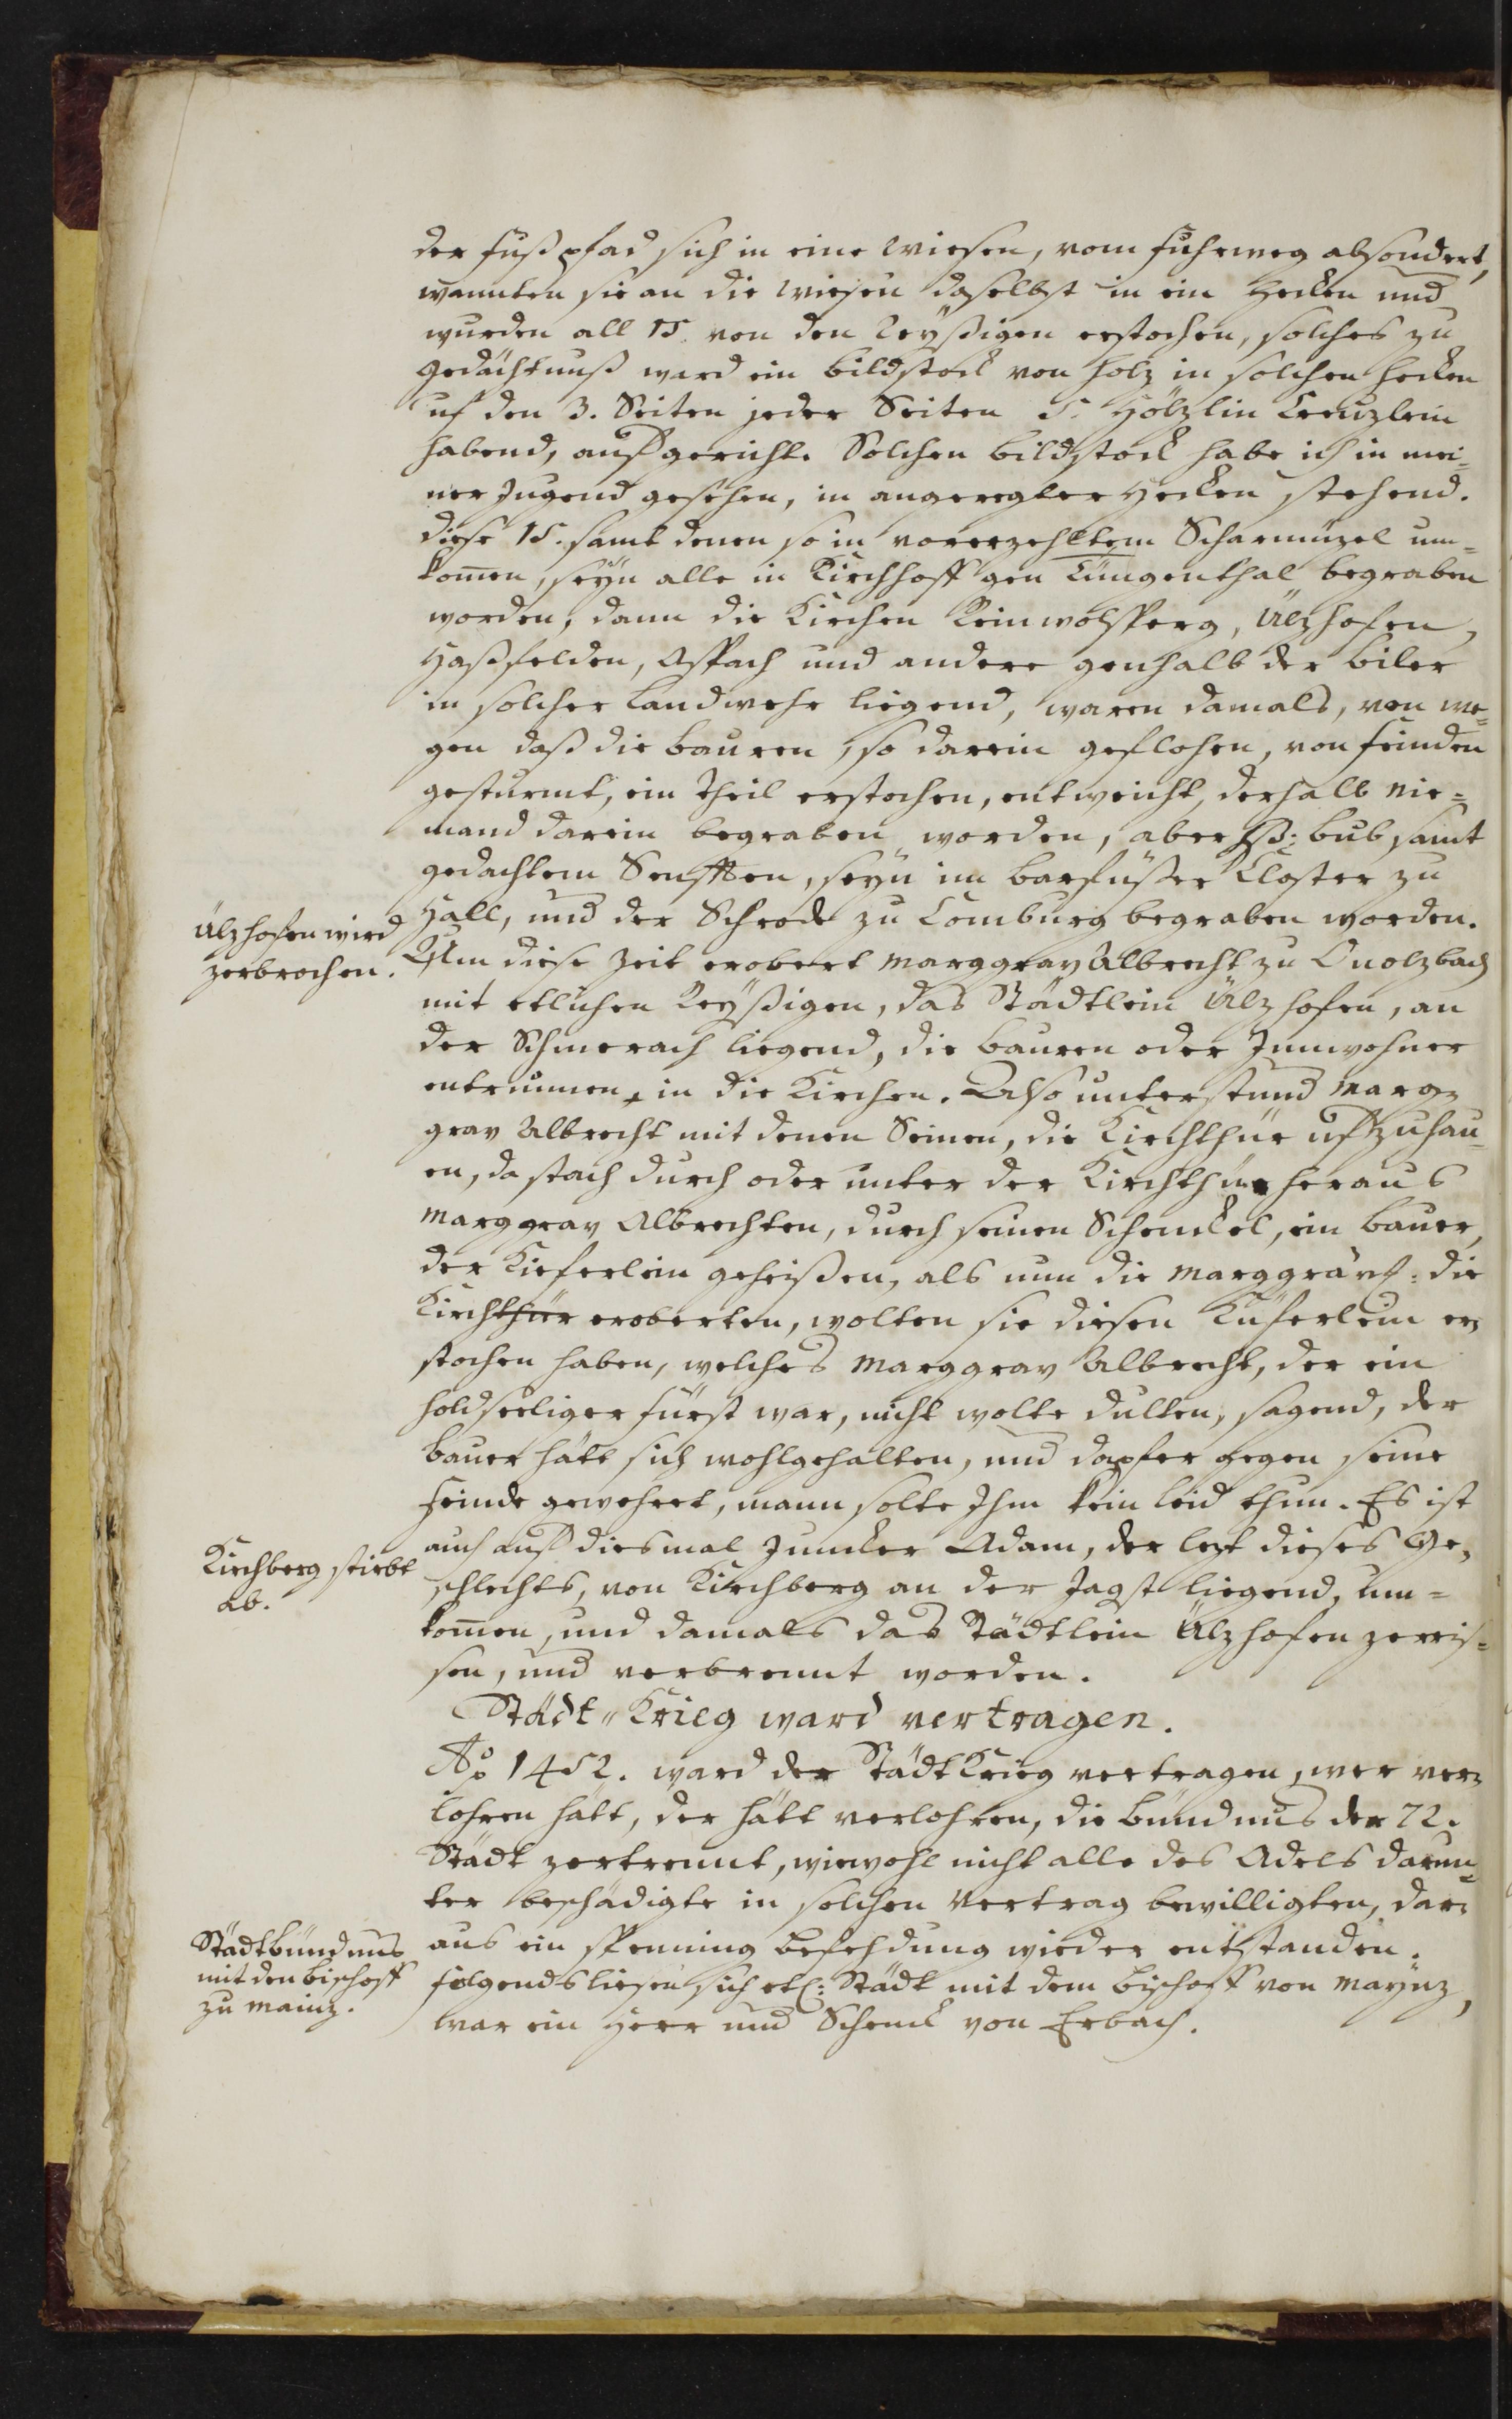 der fuß pfad sich in eine Wiesen, vom fuhrweg absondert,
wannten sie an die Wiesen daselbst in ein Hecken und
wurden all 15. von den Reyßigen erstochen, solches zu
gedächtnuß ward ein bildstock von holz in solchen Hecken
uf den 3. Seiten jeder Seiten 5. Hölzlin Creuzlein
habend, aufgericht. Solchen bildstock habe ich in mei-
ner Jugend gesehen, in angeregter Hecken stehend.
diese 15. samt denen so in vorerzehltem Scharmüzel um-
komen, seyn alle in Kirchhoff gen Tüngenthal begraben
worden, dann die Kirchen Reinwolsperg, Ülzhofen,
Haßfelden, Aspach und andere jenhalb der biler
in solcher Landwehr liegend, waren damals, von we-
gen daß die bauren, so darein geflohen, von feinden
gesturmt, ein theil erstochen, entweicht, derhalb nie-
mand darein begraben worden, aber bub samt
gedachtem Senfften, seyn im barfüßer Closter zu
Ülzhofen wird
zerbrochen.
Hall, und der Schrode zu Comburg begraben worden.
Um diese Zeit erobert marggrav Albrecht zu Onolzbach
mit etlichen Reyßigen, das Städtlein Ülzhofen, an
der Schmerach liegend, die bauren oder Innwohner
entrunnen, in die Kirchen. Also unterstund marg-
grav Albrecht mit denen Seinen, die Kirchthür ufzuhau-
en, da stach durch oder unter der Kirchthür heraus
marggrav Albrechten, durch seinen Schenckel, ein bauer,
der Kieferlein geheißen, als nun die marggräv: die
Kirchthür eroberten, wolten sie diesen Kuferlein er-
stochen haben, welches marggrav Albrecht, der ein
holdseeliger fürst war, nicht wolte dulten, sagend, der
bauer hätt sich wohlgehalten, und dapfer gegen seine
feinde gewehret, mann solte Ihm kein leid thun. Es ist
Kirchberg stirbt
ab.
auch auf diesmal Juncker Adam, der lezt dieses Ge-
schlechts, von Kirchberg an der Jagst liegend, um-
komen, und damals das Städtlein Ülzhofen zerris-
sen, und verbrennt worden.
Städt-Krieg ward vertragen.
Ao 1452. ward der StädtKrieg vertragen, wer ver-
lohren hätt, der hätt verlohren, die bündnus der 72.
Städt zertrennt, wiewohl nicht alle des Adels darun-
ter beschädigte in solchen Vertrag bewilligten, dar-
Städtbündnus
mit den bischoff
zu mainz.
aus ein spenning befehdung wieder entstanden.
folgends liesen sich etl: Städt mit dem bischoff von Maynz,
war ein Herr und Schenck von Erbach.